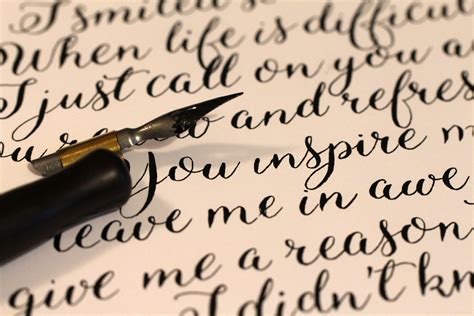 I smiled
When life is difficul
I just call on you a
and refres
You inspire m
leave me in awe
give me a reason
I didn't kn